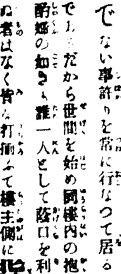 でない事許りを常に行なつて居る
でだから世間を始め同楼内の抱
酌婦の如き誰一人として蔭口を利
ぬ者はなく皆な打揃ふて楼主側に